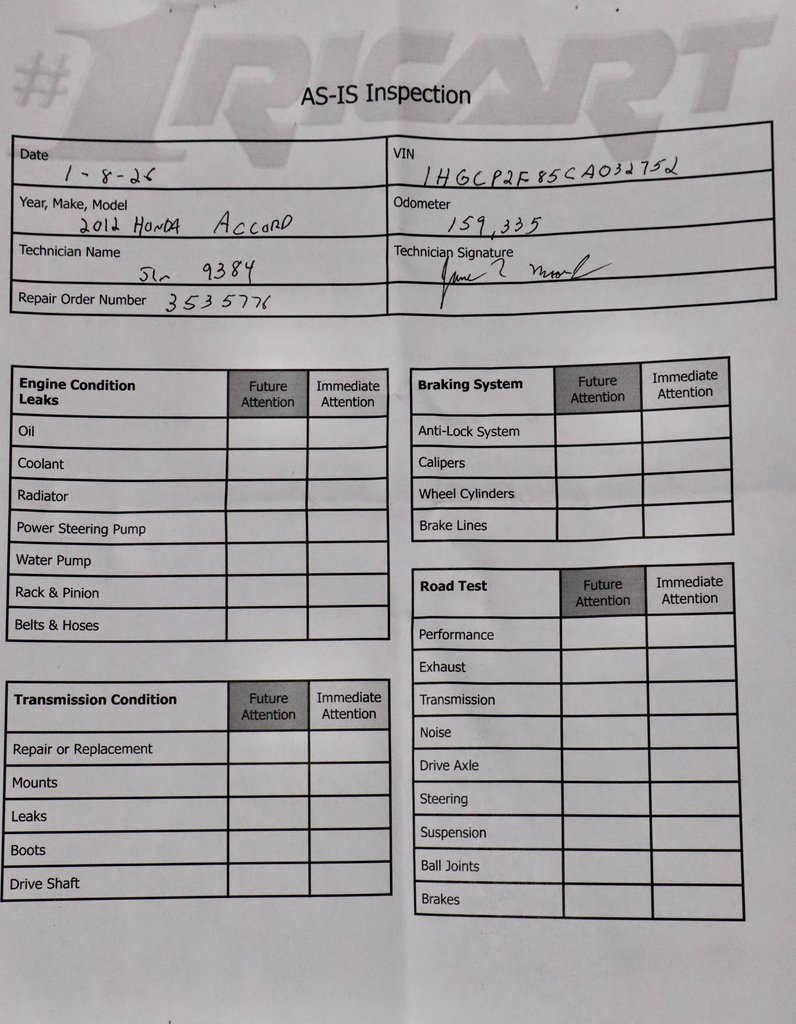 #1 RICART
AS-IS Inspection
Date 1-8-26
VIN 1HGCP2F85CA032752
Year, Make, Model 2012 HONDA ACCORD
Odometer 159,335
Technician Name 9384
Technician Signature
Repair Order Number 3535776
Engine Condition Leaks Future Attention Immediate Attention
Oil
Coolant
Radiator
Power Steering Pump
Water Pump
Rack & Pinion
Belts & Hoses
Transmission Condition Future Attention Immediate Attention
Repair or Replacement
Mounts
Leaks
Boots
Drive Shaft
Braking System Future Attention Immediate Attention
Anti-Lock System
Calipers
Wheel Cylinders
Brake Lines
Road Test Future Attention Immediate Attention
Performance
Exhaust
Transmission
Noise
Drive Axle
Steering
Suspension
Ball Joints
Brakes